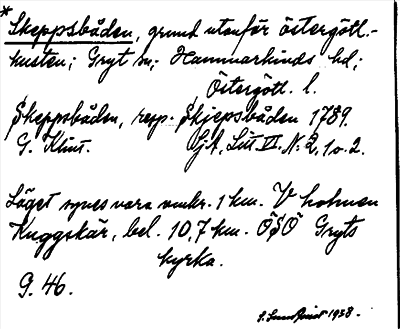 * Skeppsbåden, grund utanför östergötl.-
kusten; Gryt sn; Hammarkinds hd;
Östergötl. l.
Skeppsbåden, resp. Skjepsbåden 1789.
G. Klint. Sjk, Litt. VI. N: 2, 1 o. 2.
Läget synes vara omkr. 1 km. V holmen
Kuggskär, bel. 10,7 km. ÖSÖ Gryts
kyrka.
G. 46.
1938.